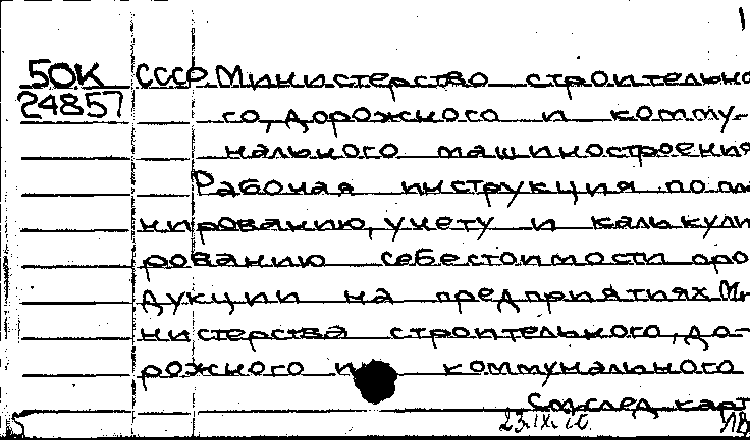 1
50К СССР. Министерство строительно
24857 го, дорожного и комму-
нального машиностроения
Рабочая инструкция по пла
нированию, учету и калькули
рованию себестоимости про
дукции на предприятиях Ми
нистерства строительного, до-
рожного и коммунального
См. след. карт
23.IX.